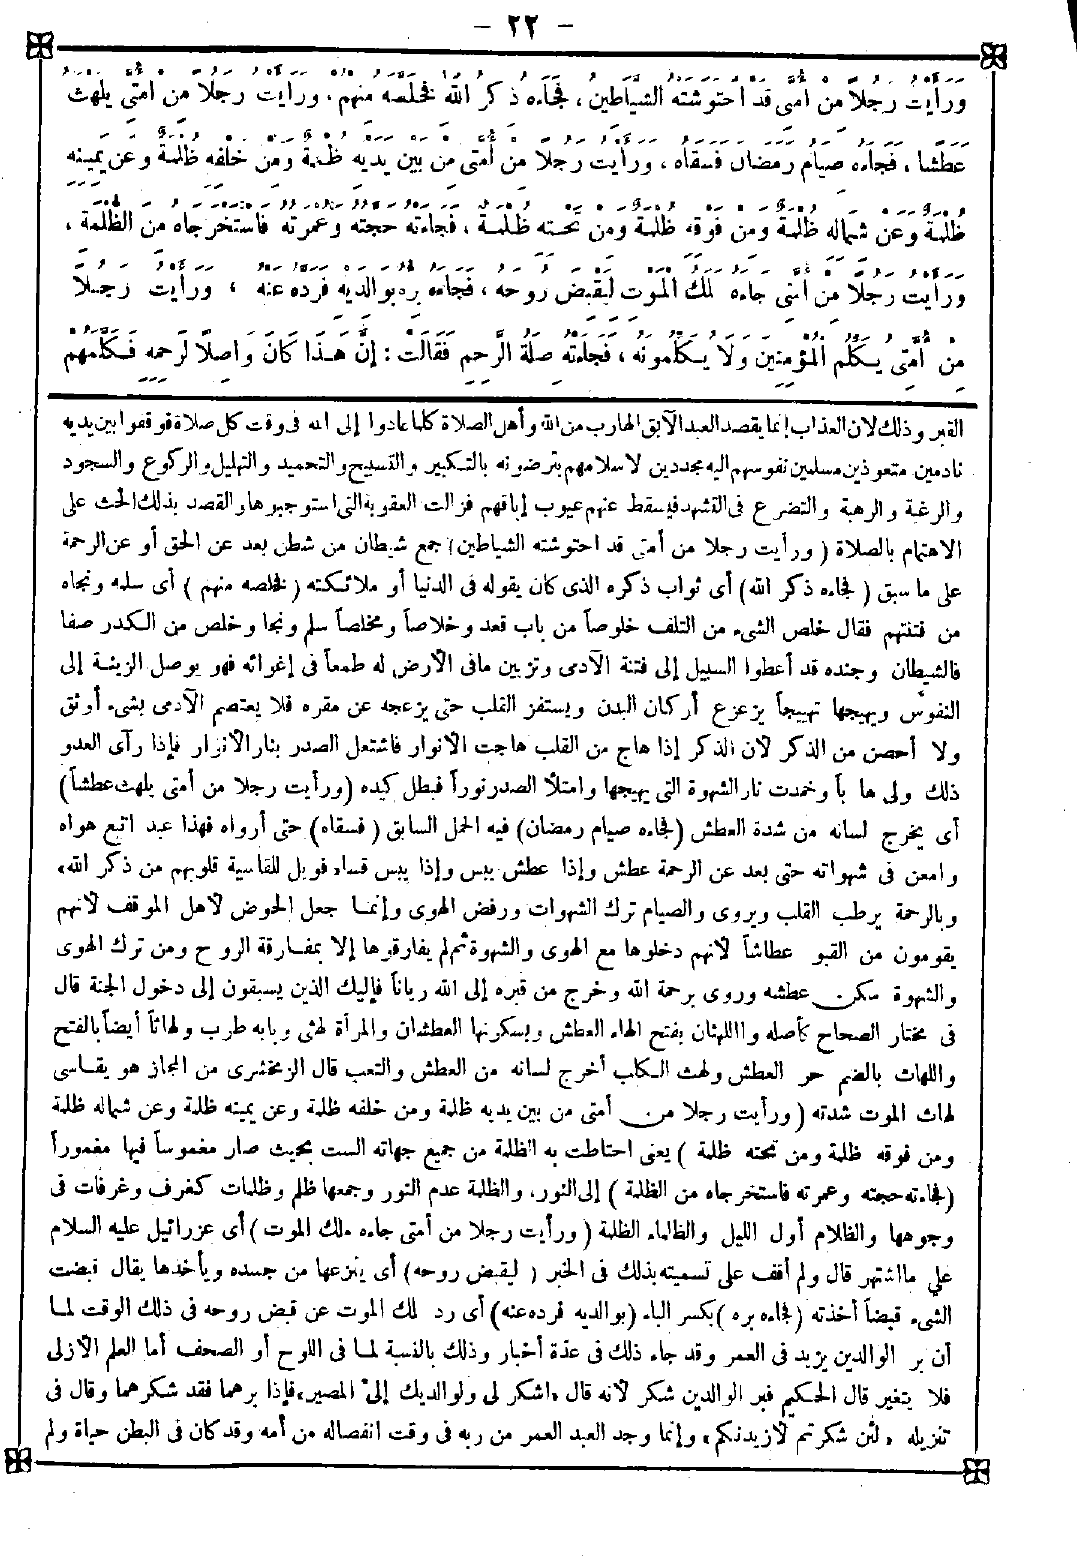 - ٢٢ -
وَرَأَيْتُ رَجُلاً مِنْ أُمَّتِي قَدْ احْتَوَشَتْهُ الشَّيَاطِينُ، فَجَاءَهُ ذِكْرُ اللّٰهِ فَخَلَّصَهُ مِنْهُمْ، وَرَأَيْتُ رَجُلاً مِنْ أُمَّتِي يَلْهَثُ
عَطَشًا، فَجَاءَهُ صِيَامُ رَمَضَانَ فَسَقَاهُ، وَرَأَيْتُ رَجُلاً مِنْ أُمَّتِي مِنْ بَيْنِ يَدَيْهِ ظُلْمَةٌ وَمِنْ خَلْفِهِ ظُلْمَةٌ وَعَنْ يَمِينِهِ
ظُلْمَةٌ وَعَنْ شِمَالِهِ ظُلْمَةٌ وَمِنْ فَوْقِهِ ظُلْمَةٌ وَمِنْ تَحْتِهِ ظُلْمَةٌ، فَجَاءَتْهُ حَجَّتُهُ وَعُمْرَتُهُ فَاسْتَخْرَجَاهُ مِنَ الظُّلْمَةِ،
وَرَأَيْتُ رَجُلاً مِنْ أُمَّتِي جَاءَهُ مَلَكُ الْمَوْتِ لِيَقْبِضَ رُوحَهُ، فَجَاءَهُ بِرُّهُ بِوَالِدَيْهِ فَرَدَّهُ عَنْهُ، وَرَأَيْتُ رَجُلاً
مِنْ أُمَّتِي يُكَلِّمُ الْمُؤْمِنِينَ وَلَا يُكَلِّمُونَهُ، فَجَاءَتْهُ صِلَةُ الرَّحِمِ فَقَالَتْ: إِنَّ هٰذَا كَانَ وَاصِلاً لِرَحِمِهِ فَكَلَّمَهُمْ
القبر وذلك لأن العذاب إنما يقصد العبد الآبق الهارب من الله وأهل الصلاة كلما عادوا إلى الله فى وقت كل صلاة فوقفوا بين يديه
نادمين متعوذين مسلمين نفوسهم إليه مجددين لاسلامهم يترضونه بالتكبير والتسبيح والتحميد والتهليل والركوع والسجود
والرغبة والرهبة والتضرع فى التشهد فيسقط عنهم عيوب إباقهم فزالت العقوبة التى استوجبوها والقصد بذلك الحث على
الاهتمام بالصلاة (ورأيت رجلا من أمتى قد احتوشته الشياطين) جمع شيطان من شطن بعد عن الحق أو عن الرحمة
على ما سبق (فجاءه ذكر الله) أى ثواب ذكره الذى كان يقوله فى الدنيا أو ملائكته (فخلصه منهم) أى سلمه ونجاه
من فتنتهم فقال خلص الشىء من التلف خلوصاً من باب قعد وخلاصاً ومخلصاً سلم ونجا وخلص من الكدر صفا
فالشيطان وجنده قد أعطوا السبيل إلى فتنة الآدمى وتزيين مافى الأرض له طمعاً فى إغوائه فهو يوصل الزينة إلى
النفوس ويهيجها تهييجاً يزعزع أركان البدن ويستفز القلب حتى يزعجه عن مقره فلا يعتصم الآدمى بشىء أوثق
ولا أحصن من الذكر لأن الذكر إذا هاج من القلب هاجت الأنوار فاشتعل الصدر بنار الأنوار فإذا رآى العدو
ذلك ولى هاربا وخمدت نار الشهوة التى يهيجها وامتلأ الصدر نوراً فبطل كيده (ورأيت رجلا من أمتى يلهث عطشاً)
أى يخرج لسانه من شدة العطش (فجاءه صيام رمضان) فيه الحمل السابق (فسقاه) حتى أرواه فهذا عبد اتبع هواه
وامعن فى شهواته حتى بعد عن الرحمة عطش وإذا عطش يبس وإذا يبس قساء فويل للقاسية قلوبهم من ذكر الله،
وبالرحمة يرطب القلب ويروى والصيام ترك الشهوات ورفض الهوى وإنما جعل الحوض لأهل الموقف لأنهم
يقومون من القبو عطاشاً لأنهم دخلوها مع الهوى والشهوة ثم لم يفارقوها إلا بمفارقة الروح ومن ترك الهوى
والشهوة سكن عطشه وروى برحمة الله وخرج من قبره إلى الله رياناً فإليك الذين يسبقون إلى دخول الجنة قال
فى مختار الصحاح كأصله واللهثان بفتح الهاء العطش وبسكونها العطشان والمرأة لهثى وبابه طرب ولهاثاً أيضاً بالفتح
واللهاث بالضم حر العطش ولهث الكلب أخرج لسانه من العطش والتعب قال الزمخشرى من المجاز هو يقاسى
لهاث الموت شدته (ورأيت رجلا من أمتى من بين يديه ظلمة ومن خلفه ظلمة وعن يمينه ظلمة وعن شماله ظلمة
ومن فوقه ظلمة ومن تحته ظلمة) يعنى احتاطت به الظلمة من جميع جهاته الست بحيث صار مغموساً فيها مغموراً
(فجاءته حجته وعمرته فاستخرجاه من الظلمة) إلى النور، والظلمة عدم النور وجمعها ظلم وظلمات كغرف وغرفات فى
وجوهها والظلام أول الليل والظلماء الظلمة (ورأيت رجلا من أمتى جاءه ملك الموت) أى عزرائيل عليه السلام
على مااشتهر قال ولم أقف على تسميته بذلك فى الخبر (ليقبض روحه) أى ينزعها من جسده ويأخذها يقال قبضت
الشىء قبضاً أخذته (فجاءه بره) بكسر الباء (بوالديه فرده عنه) أى رد ملك الموت عن قبض روحه فى ذلك الوقت لما
أن بر الوالدين يزيد فى العمر وقد جاء ذلك فى عدة أخبار وذلك بالنسبة لما فى اللوح أو الصحف أما العلم الأزلى
فلا يتغير قال الحكيم فبر الوالدين شكر لأنه قال «اشكر لى ولوالديك إلىّ المصير» فإذا برهما فقد شكرهما وقال فى
تنزيله «لئن شكرتم لأزيدنكم» وإنما وجد العبد العمر من ربه فى وقت انفصاله من أمه وقد كان فى البطن حياة ولم